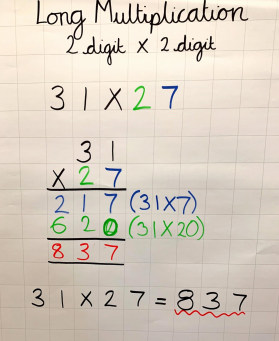 Long Multiplication
2 digit x 2 digit
31X27
31
X27
217 (31X7)
620 (31X20)
837
31X27=837